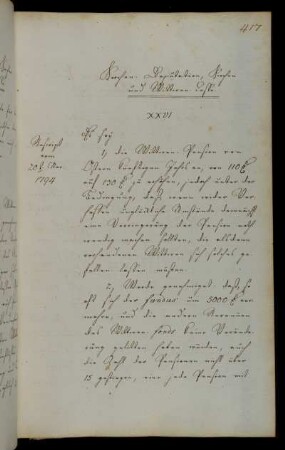 417
Kirchen-Deputation, Kirchen
und Wittwen Casse
XXVI
Rescript
vom
20t. Mai
1794
Es sey
1, die Wittwen-Pension von
Ostern künftigen Jahres an, von 110 f
auf 130 f zu erhöhen, jedoch unter der
Bedingung, daß wenn wider Ver-
hoffen unglückliche Umstände dereinst
eine Verringerung der Pension noth
wendig machen sollten, die alsdann
vorhandenen Wittwen sich solches ge-
fallen lassen müßen.
2, Werde genehmiget, daß, so
oft sich der fundus um 5000 f ver-
mehre, und die andern Revenüen
des Wittwen-fonds keine Verände-
rung gelitten haben würden, auch
die Zahl der Pensionen nicht über
15 gestiegen, eine jede Pension mit